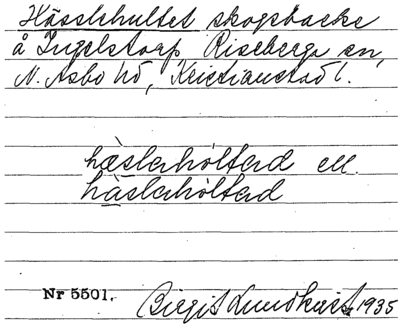 Hässlehultet skogsbacke
å Ingelstorp Riseberga sn,
N. Åsbo hd, Kristianstad l.
hæ̀slahòltad ell.
hàslahòltad
Nr 5501.
Birgit Lundkvist, 1935